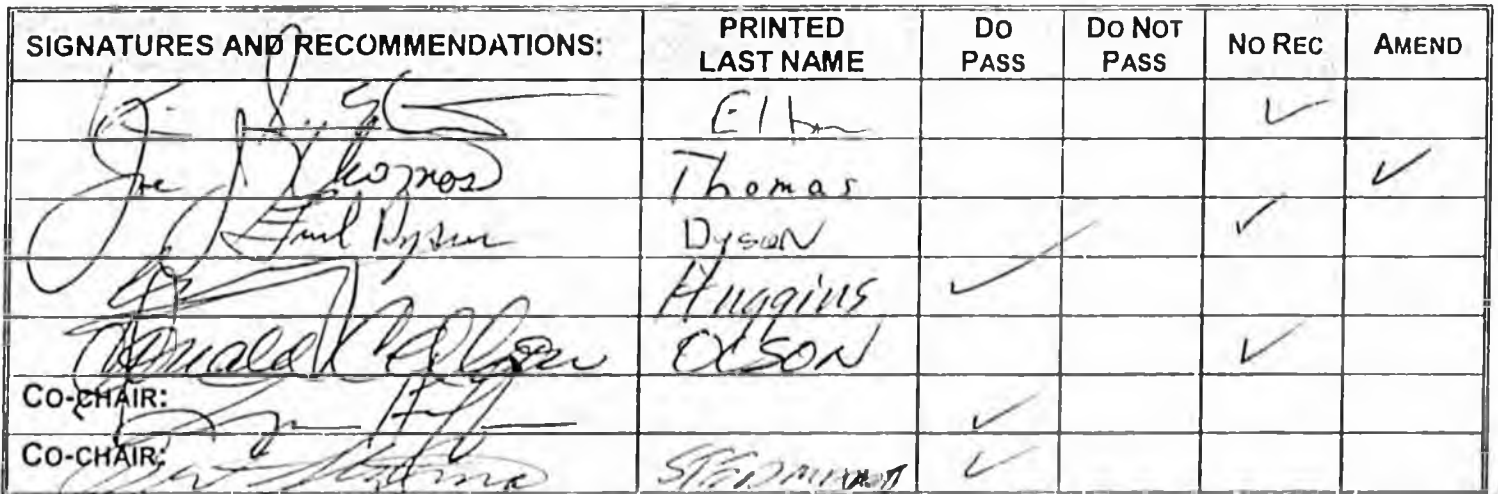 SIGNATURES AND RECOMMENDATIONS: PRINTED LAST NAME DO PASS DO NOT PASS NO REC AMEND
✓
Joe J Thomas Thomas ✓
Fred Dyson Dyson ✓
Huggins ✓
Donald C Olson OLSON ✓
CO-CHAIR: ✓
CO-CHAIR: ✓